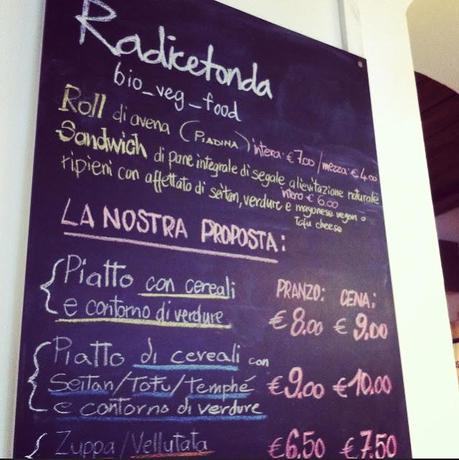 Radicetonda
bio_veg_food
Roll di avena (PIADINA) intera: € 7.00 / mezza: € 4.00
Sandwich di pane integrale di segale a lievitazione naturale
intero € 6.00
ripieni con affettato di seitan, verdure e mayonese vegan o
Tofu cheese
LA NOSTRA PROPOSTA:
PRANZO: CENA:
Piatto con cereali
e contorno di verdure € 8.00 € 9.00
Piatto di cereali con
Seitan/Tofu/Temphé € 9.00 € 10.00
e contorno di verdure
Zuppa/Vellutata € 6.50 € 7.50